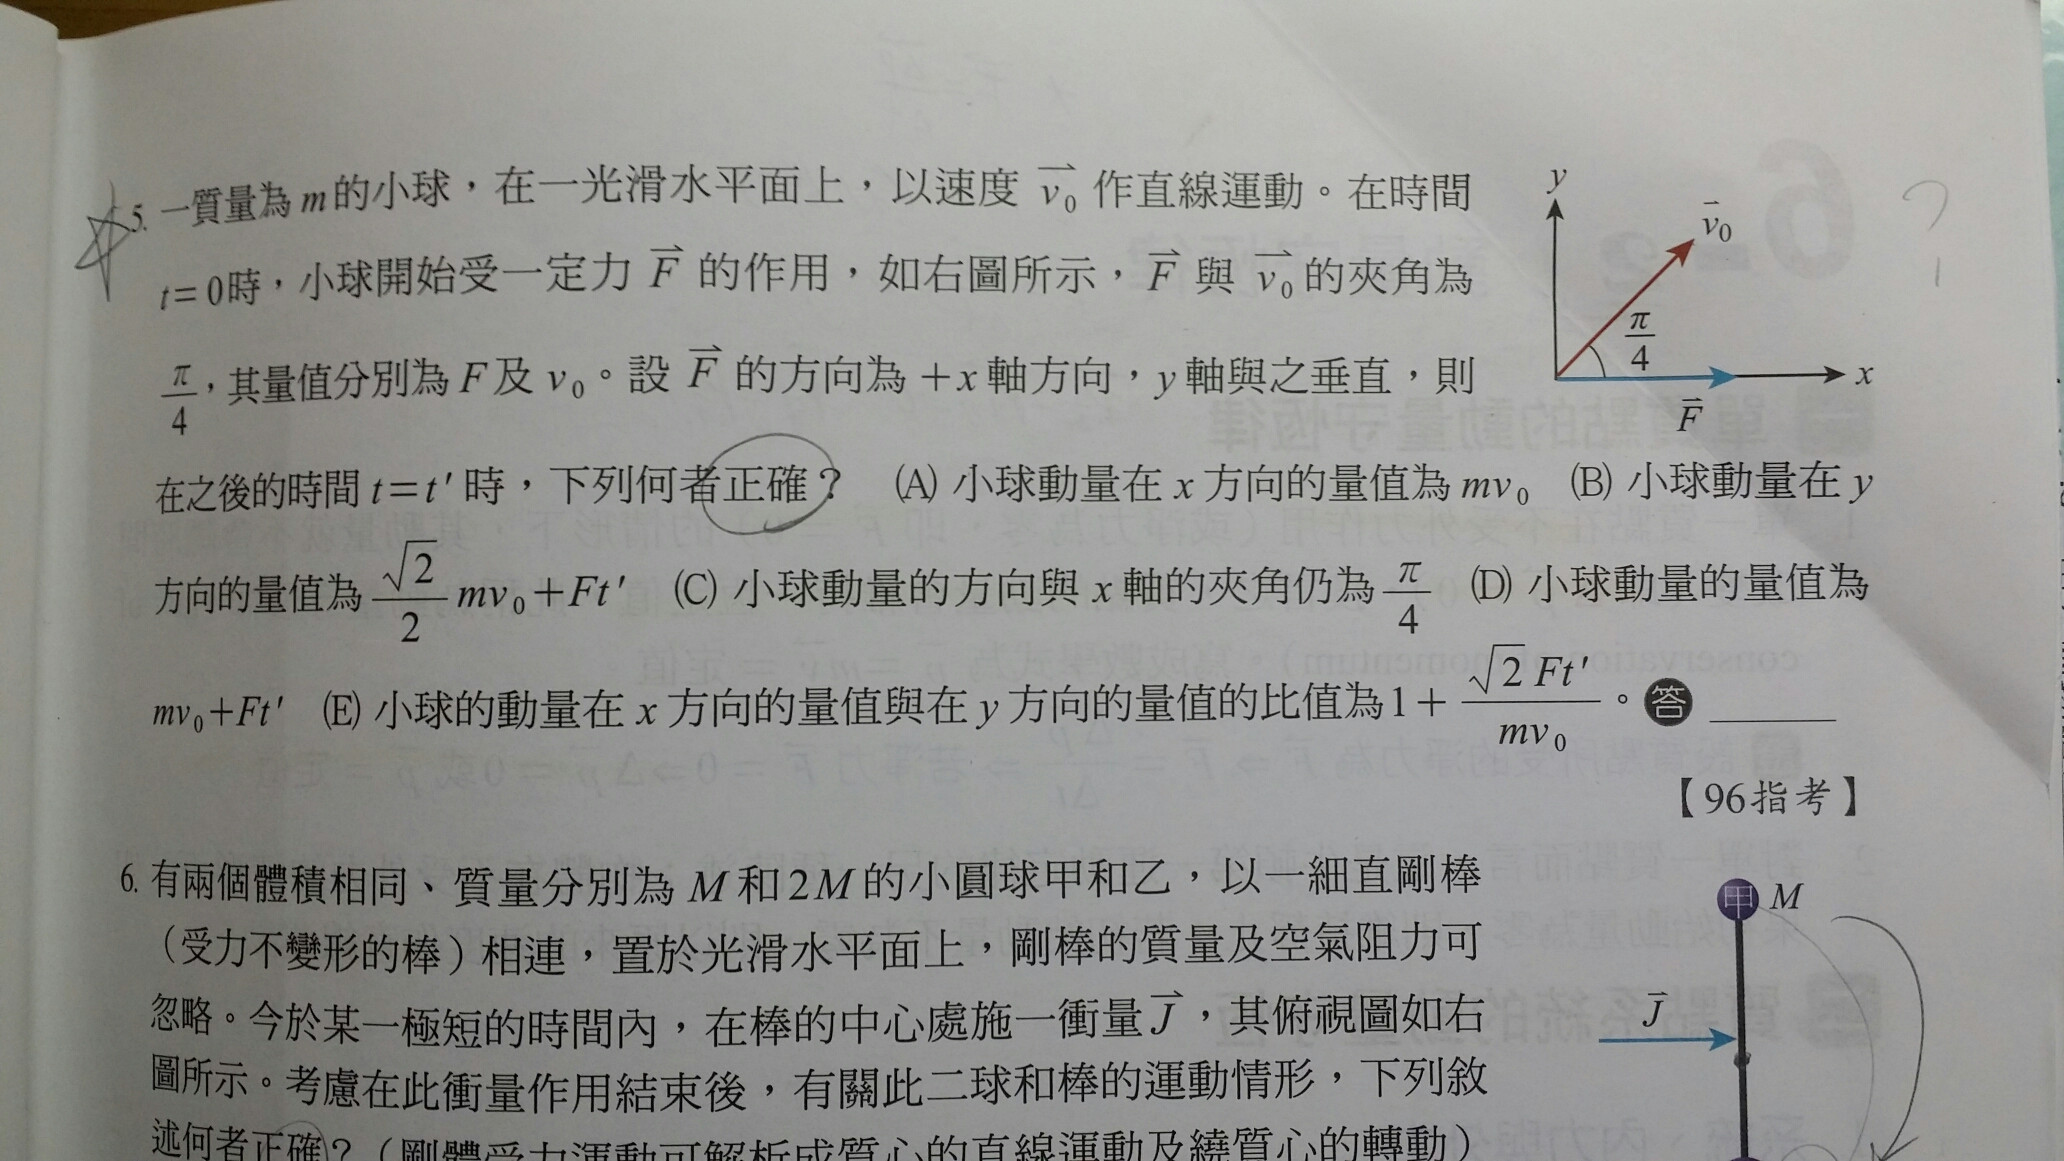 5. 一質量為 m 的小球，在一光滑水平面上，以速度 $\vec{v_0}$ 作直線運動。在時間
t=0時，小球開始受一定力 $\vec{F}$ 的作用，如右圖所示，$\vec{F}$ 與 $\vec{v_0}$ 的夾角為
$\frac{\pi}{4}$，其量值分別為 F 及 $v_0$。設 $\vec{F}$ 的方向為 +x 軸方向，y 軸與之垂直，則
在之後的時間 t=t' 時，下列何者正確？ (A) 小球動量在 x 方向的量值為 $mv_0$ (B) 小球動量在 y
方向的量值為 $\frac{\sqrt{2}}{2}mv_0+Ft'$ (C) 小球動量的方向與 x 軸的夾角仍為 $\frac{\pi}{4}$ (D) 小球動量的量值為
$mv_0+Ft'$ (E) 小球的動量在 x 方向的量值與在 y 方向的量值的比值為 $1+\frac{\sqrt{2}Ft'}{mv_0}$。答
【96指考】
y
$\vec{v_0}$
$\frac{\pi}{4}$
x
$\vec{F}$
?
6. 有兩個體積相同、質量分別為 M 和 2M 的小圓球甲和乙，以一細直剛棒
（受力不變形的棒）相連，置於光滑水平面上，剛棒的質量及空氣阻力可
忽略。今於某一極短的時間內，在棒的中心處施一衝量 $\vec{J}$，其俯視圖如右
圖所示。考慮在此衝量作用結束後，有關此二球和棒的運動情形，下列敘
述何者正確？（剛體受力運動可解析成質心的直線運動及繞質心的轉動）
甲 M
$\vec{J}$